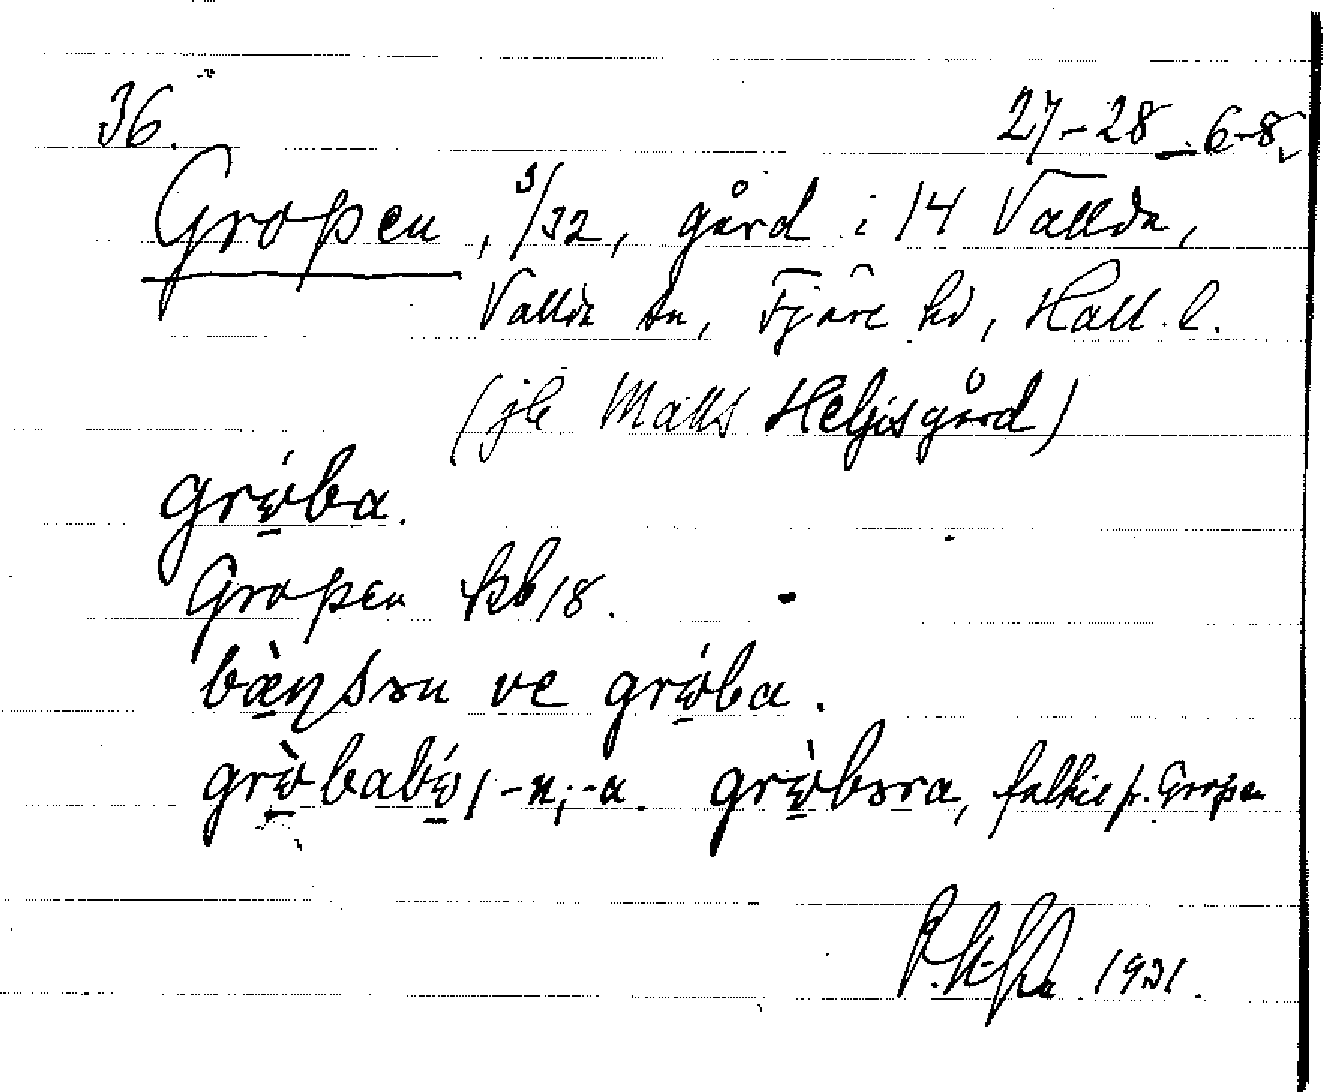 36. 27-28 - 6-8
Gropen, 3/32, gård i 14 Vallda,
Vallda sn, Fjäre hd, Hall. l.
(jb Matts Heljisgård)
grω̇ba.
Gropen kb 18.
bæ̀ŋsɜn ve grω̇ba.
grὼbabώ, -n; -a. grὼbɜra, folkis fr. Gropen
1931.